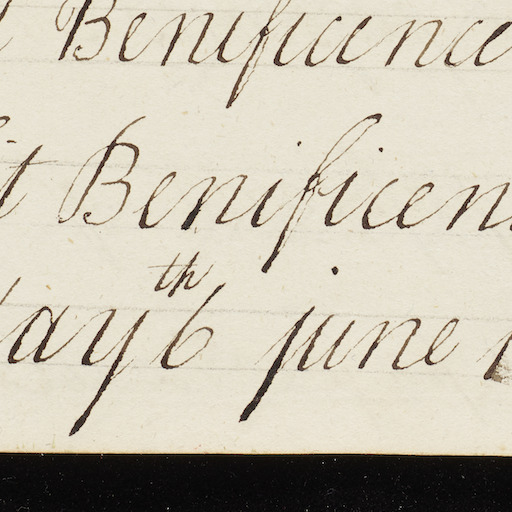 t Benificence
it Benificen
day 6th june 1